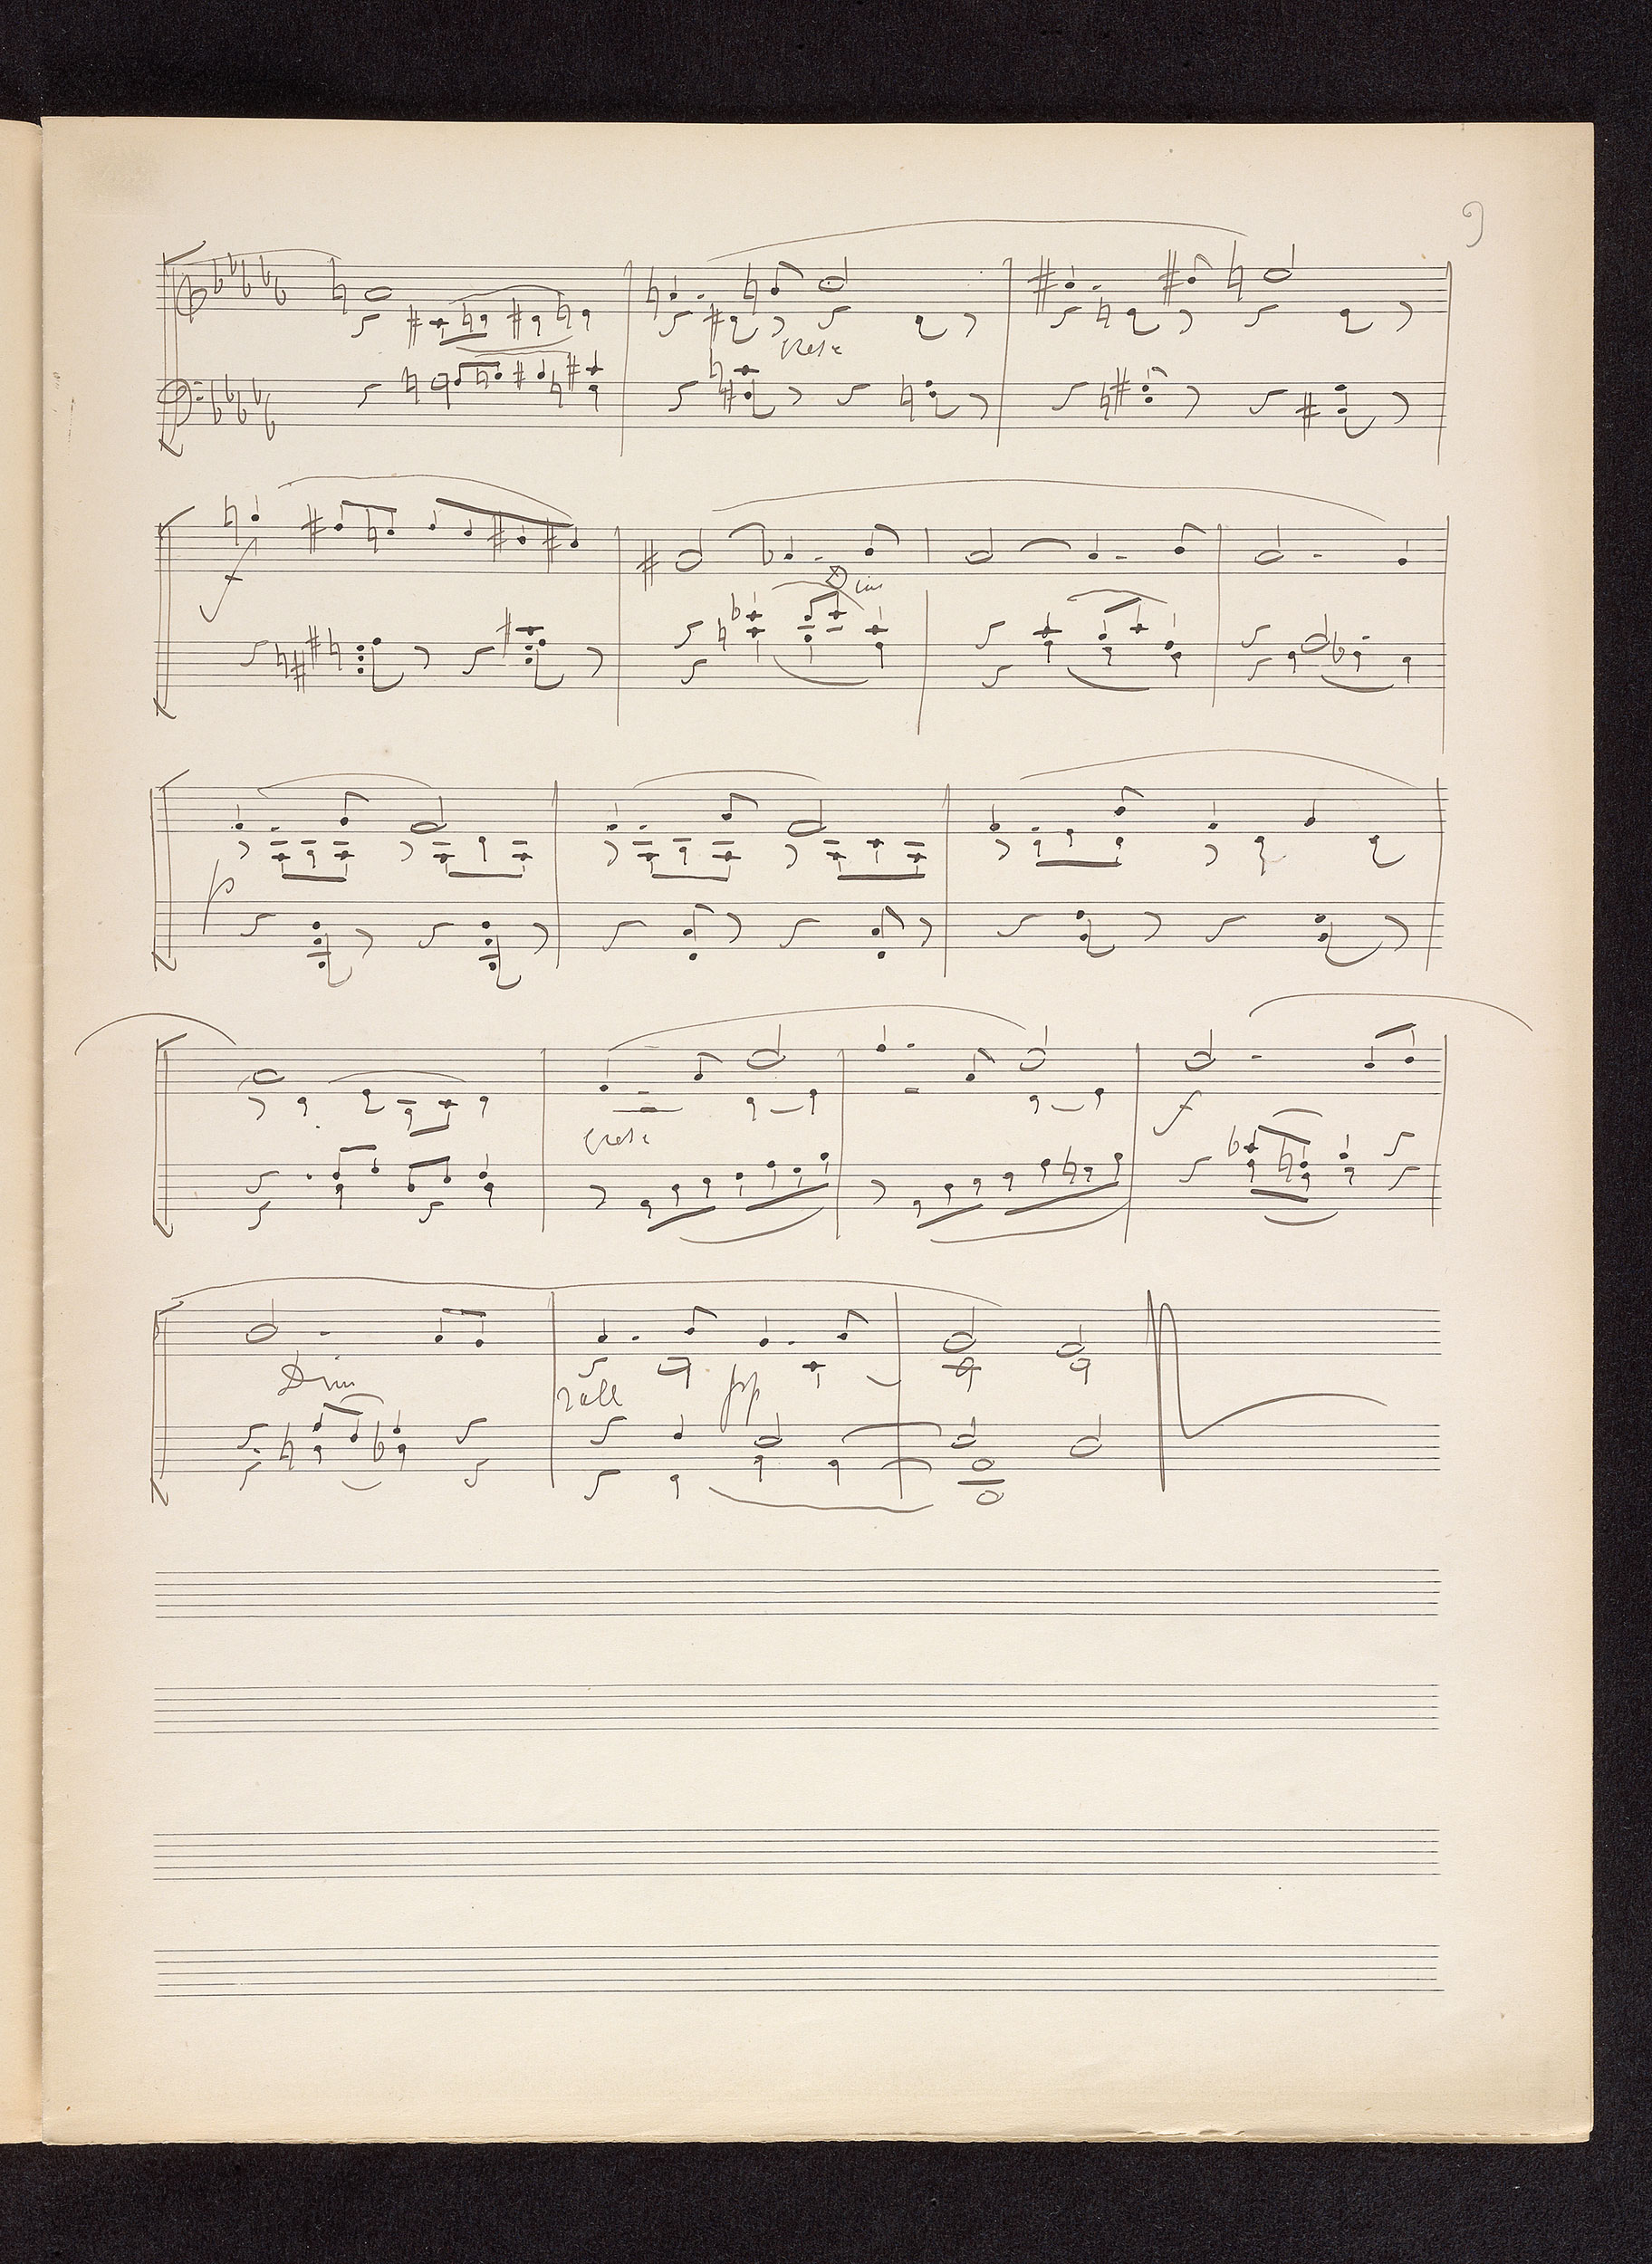 9
cresc
f
Dim
p
cresc
f
Dim
rall pp